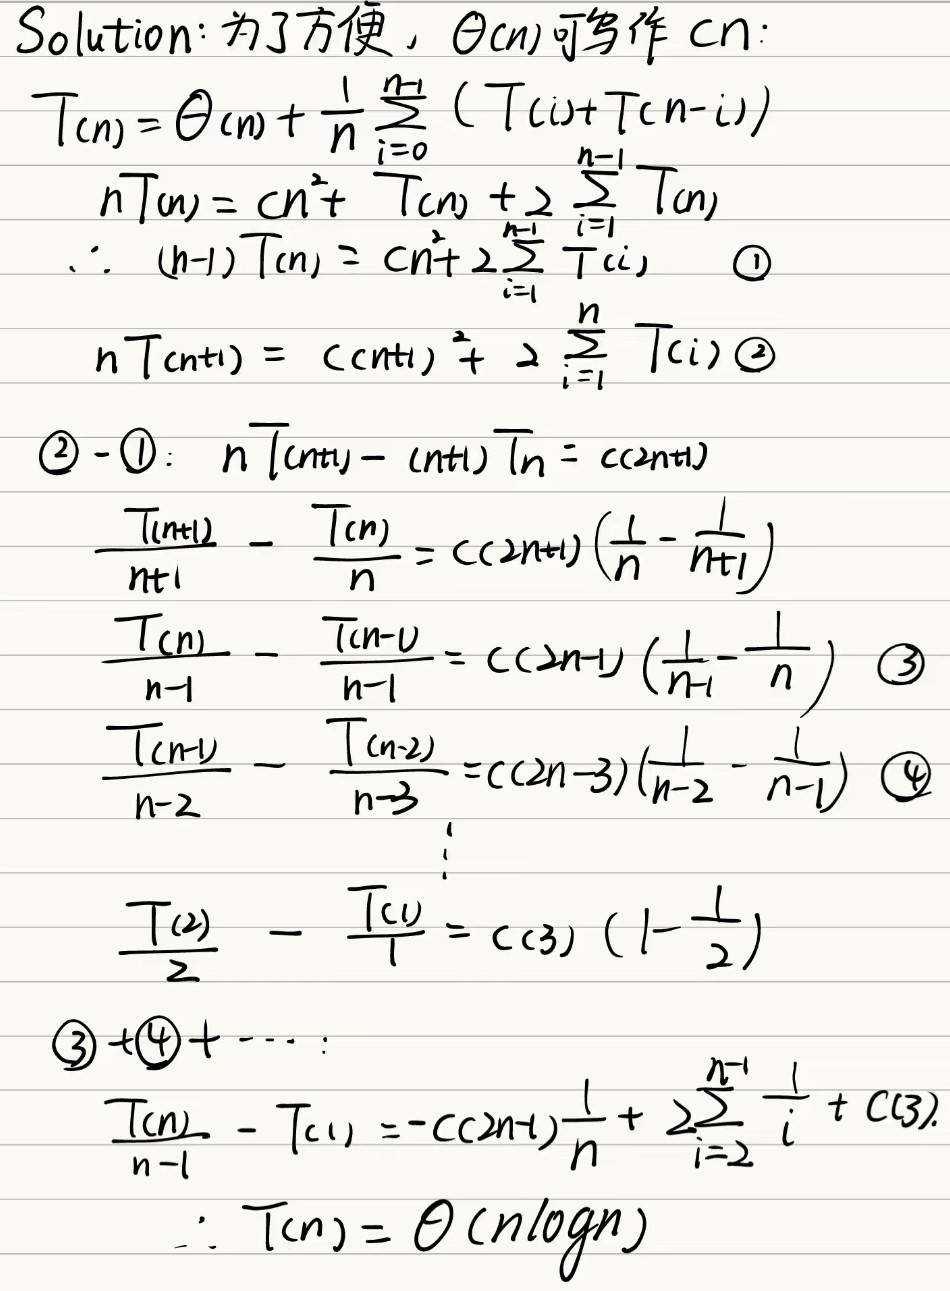 Solution: 为了方便，Θ(n)可写作 cn:
T(n) = Θ(n) + 1/n ∑_{i=0}^{n-1} (T(i)+T(n-i))
nT(n) = cn² + T(n) + 2 ∑_{i=1}^{n-1} T(n)
∴ (n-1)T(n) = cn² + 2∑_{i=1}^{n-1} T(i) ①
nT(n+1) = c(n+1)² + 2 ∑_{i=1}^{n} T(i) ②
②-①: nT(n+1) - (n+1)Tn = c(2n+1)
T(n+1)/(n+1) - T(n)/n = c(2n+1)(1/n - 1/(n+1))
T(n)/(n-1) - T(n-1)/(n-1) = c(2n-1)(1/(n-1) - 1/n) ③
T(n-1)/(n-2) - T(n-2)/(n-3) = c(2n-3)(1/(n-2) - 1/(n-1)) ④
⋮
T(2)/2 - T(1)/1 = c(3)(1 - 1/2)
③+④+····:
T(n)/(n-1) - T(1) = -c(2n-1)1/n + 2∑_{i=2}^{n-1} 1/i + c(3).
∴ T(n) = Θ(nlogn)